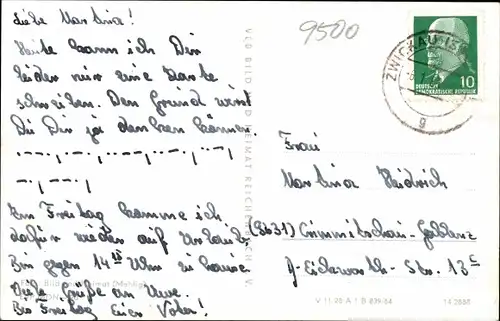 Liebe Martina!
Heute kann ich Dir
leider nur eine Karte
schreiben. Den Grund wirst
Du Dir ja denken können.
Am Freitag komme ich
dafür wieder auf Urlaub.
Bin gegen 14 Uhr zu Hause.
Viele Grüße an Uwe.
Bis Freitag Euer Vater!
9500
ZWICKAU
g
DEUTSCHE
DEMOKRATISCHE REPUBLIK
10
Frau
Martina Heidrich
(9631) Crimmitschau-Gablenz
Str. 13c
V 11 28 A 1 B 839/64